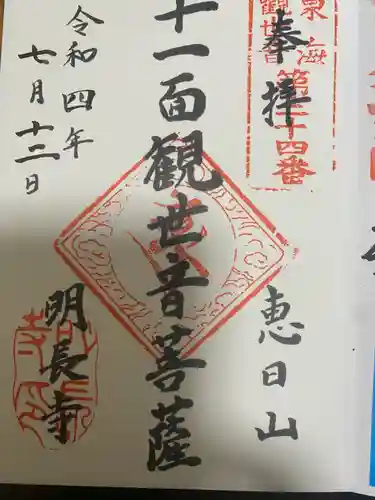 奉拝
観世音
十四番
恵日山
十一面観世音菩薩
令和四年
七月十二日
明長寺